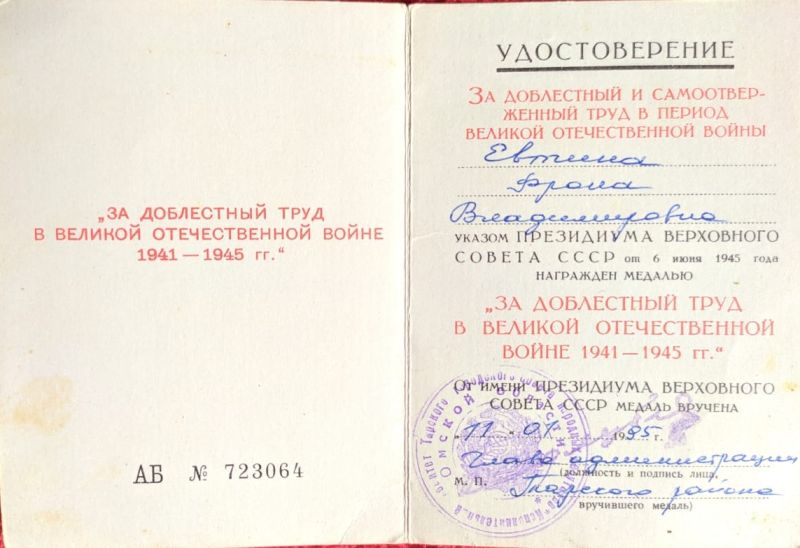 „ЗА ДОБЛЕСТНЫЙ ТРУД
В ВЕЛИКОЙ ОТЕЧЕСТВЕННОЙ ВОЙНЕ
1941 — 1945 гг.“
АБ № 723064
УДОСТОВЕРЕНИЕ
ЗА ДОБЛЕСТНЫЙ И САМООТВЕР-
ЖЕННЫЙ ТРУД В ПЕРИОД
ВЕЛИКОЙ ОТЕЧЕСТВЕННОЙ ВОЙНЫ
Владимировна
УКАЗОМ ПРЕЗИДИУМА ВЕРХОВНОГО
СОВЕТА СССР от 6 июня 1945 года
НАГРАЖДЕН МЕДАЛЬЮ
„ЗА ДОБЛЕСТНЫЙ ТРУД
В ВЕЛИКОЙ ОТЕЧЕСТВЕННОЙ
ВОЙНЕ 1941 — 1945 гг.“
ОТ ИМЕНИ ПРЕЗИДИУМА ВЕРХОВНОГО
СОВЕТА СССР МЕДАЛЬ ВРУЧЕНА
„11“ 01 1995 г.
Глава администрации
(должность и подпись лица,
М. П. Тарского района
вручившего медаль)
Тарского городского Совета народных
Омской области